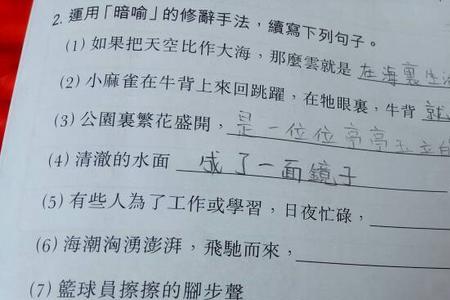 2. 運用「暗喻」的修辭手法，續寫下列句子。
(1) 如果把天空比作大海，那麼雲就是 在海裏生活
(2) 小麻雀在牛背上來回跳躍，在牠眼裏，牛背 就
(3) 公園裏繁花盛開，是一位位亭亭玉立的
(4) 清澈的水面 成了一面鏡子
(5) 有些人為了工作或學習，日夜忙碌，
(6) 海潮洶湧澎湃，飛馳而來，
(7) 籃球員擦擦的腳步聲